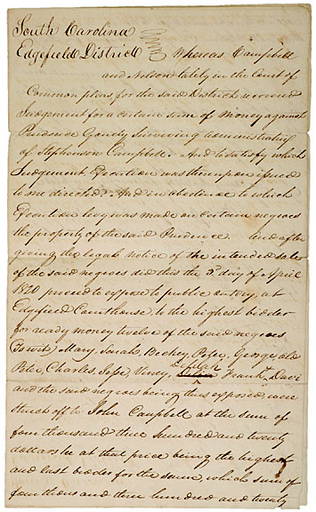 South Carolina
Edgefield District
Whereas Campbell
and Nelson lately in the Court of
Common pleas, for the said District recovered
Judgement for a certain sum of money against
Prudence Gandy Surviving administratrix
of Stephenson Campbell. And to satisfy which
Judgement Execution was thereupon issued
to me directed. And in obedience to which
Execution levy was made on certain negroes
the property of the said Prudence and after
giving the legal notice of the intended sale
of the said negroes did this the 3 day of April
1820 proceed to expose to public outcry at
Edgefield Courthouse, to the highest bidder
for ready money twelve of the said negroes
(towit) Mary, Sarah, Beckey, George, old
Peter, Charles, Viney, Frank, Davi
and the said negroes being thus exposed were
struck off to John Campbell at the sum of
four thousand three hundred and twenty
dollars he at that price being the highest
and last bidder for the same, which sum of
four thousand and three hundred and twenty